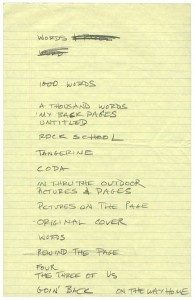 WORDS
WORD
1000 WORDS
A THOUSAND WORDS
MY BACK PAGES
UNTITLED
ROCK SCHOOL
TANGERINE
CODA
IN THRU THE OUTDOOR
PICTURES & PAGES
PICTURES ON THE PAGE
ORIGINAL COVER
WORDS
BEHIND THE PAGE
FOUR
THE THREE OF US
GOIN' BACK ON THE WAY HOME